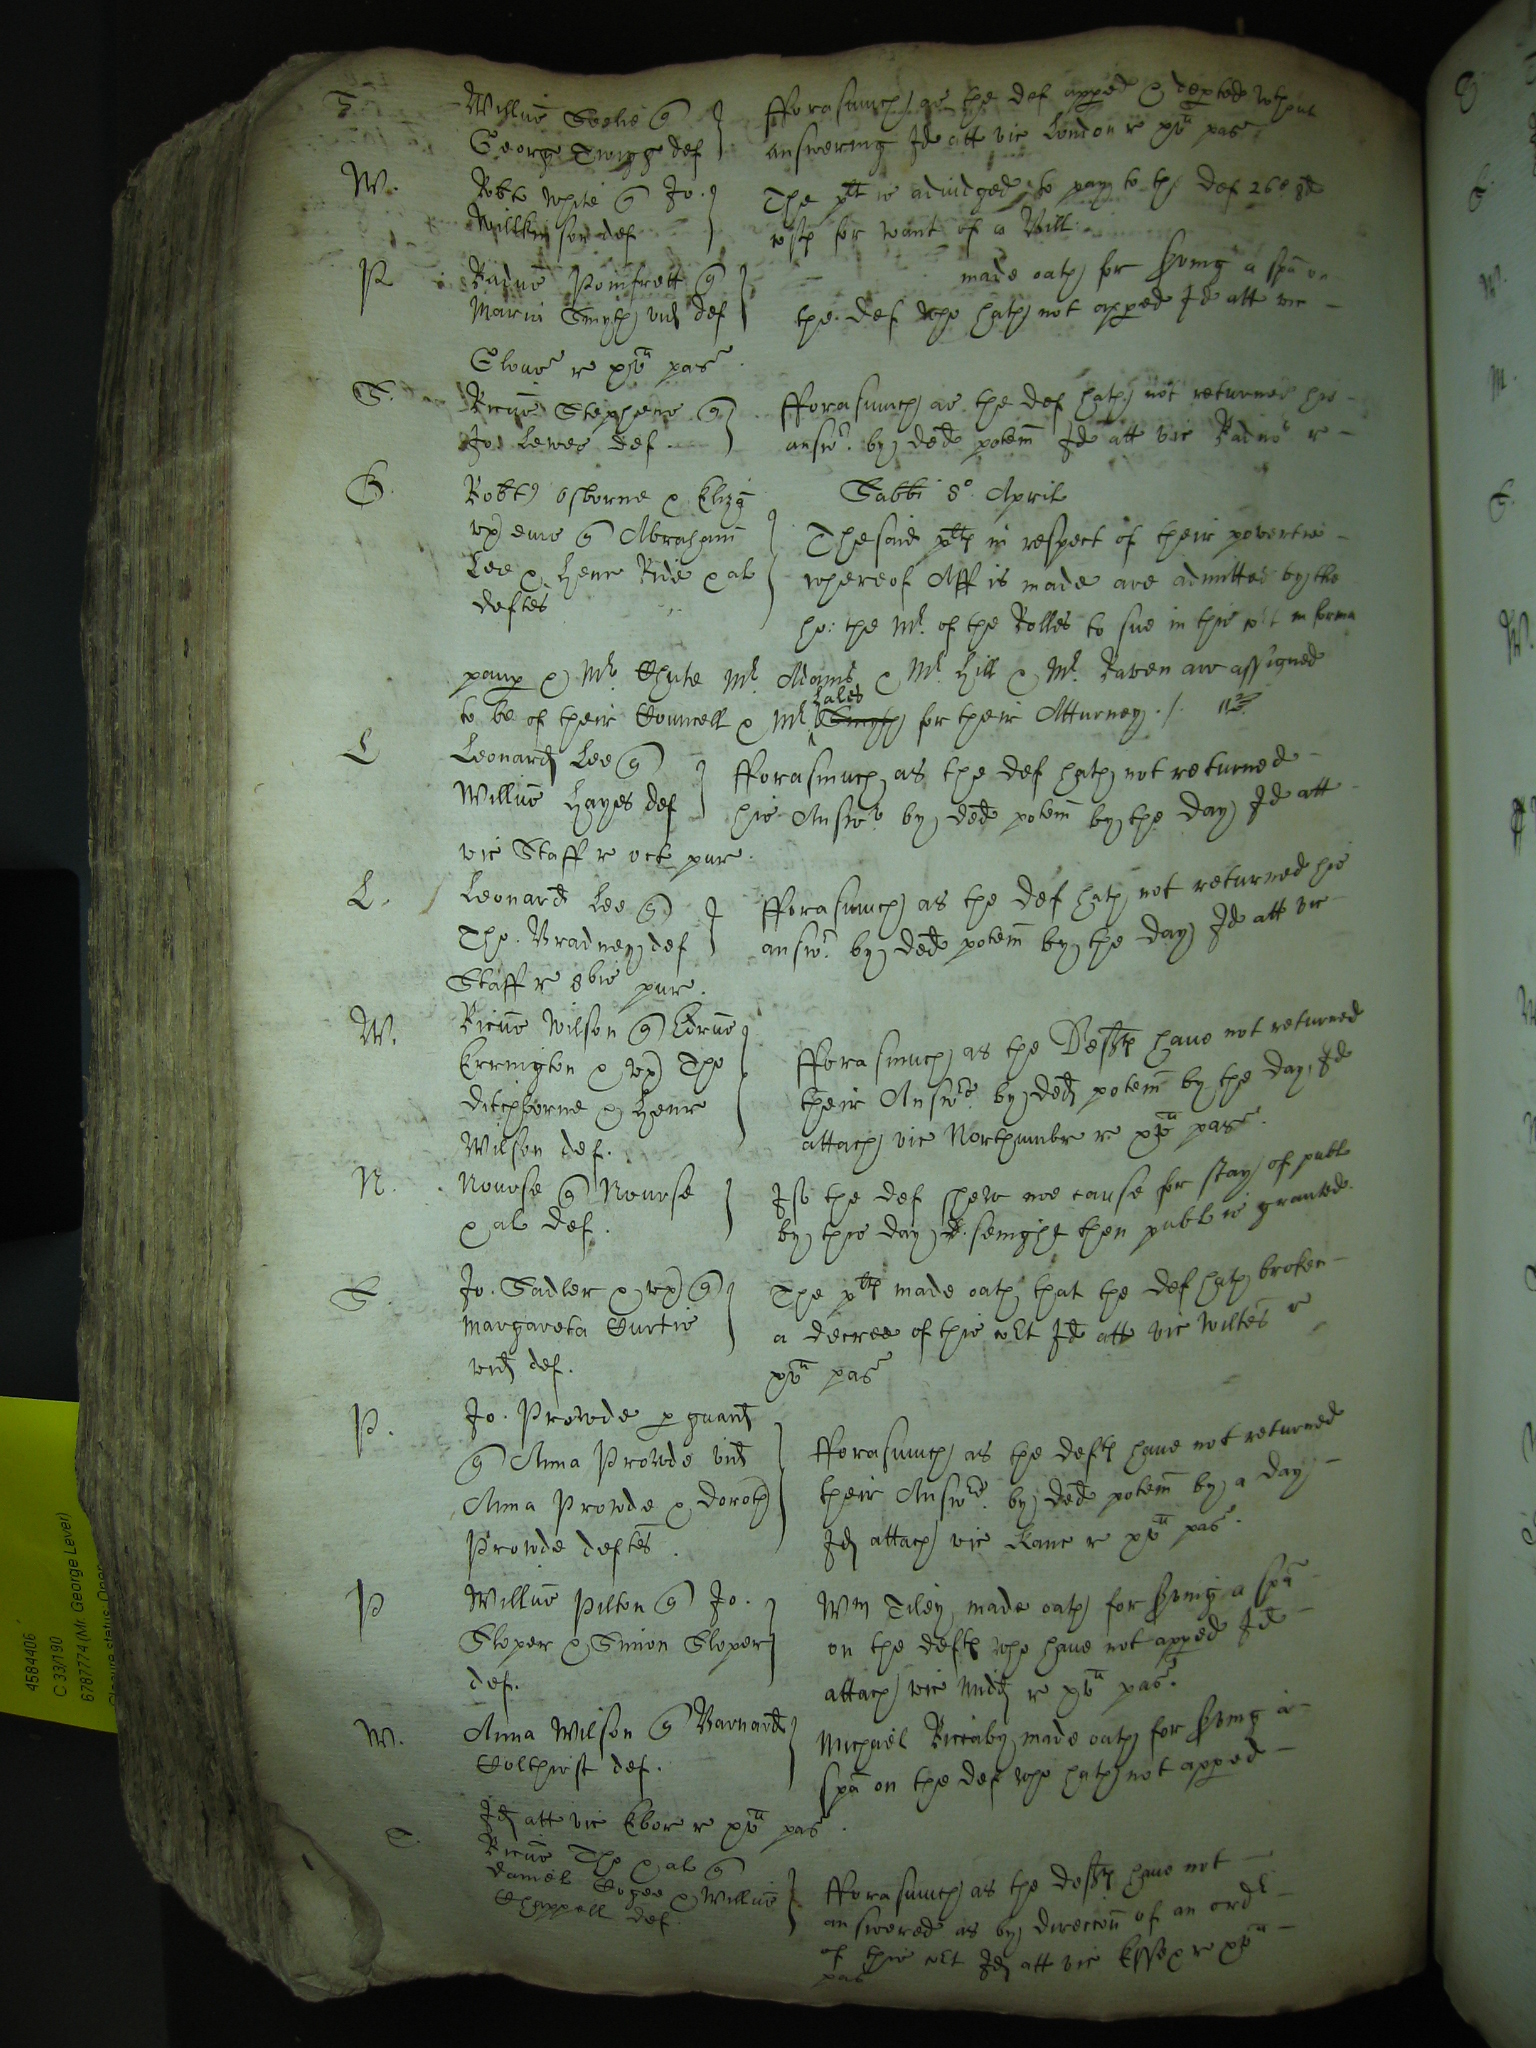 Willus Seelie q
George Twigge def
fforasmuch as the def apped & depted wthout
answering Id att vic London r xv a pas
W. Robte White q Jo.
Wilkinson def
The plt is adiudged to pay to the def 26s 8d
costs for want of a Bill
P Radus Pomfrett q
Maria Smyth vid def
made oath for serving a spa on
the def who hath not apped Id att vic
Glouc r xv a pas
S. Ricus Stephens q
Jo Lewes def.
fforasmuch as the def hath not returned his
answr by ded potem Id att vic Radnor r
Sabbi 8o April
Robte Osborne & Eliz
vx eius q Abraham
Lee & Henr Ride & al
deftes
The said plts in respect of their povertie
whereof Aff is made are admitted by the
ho: the Mr of the Rolles to sue in this cort in forma
paup & Mr Chute Mr Adams & Mr Hill & Mr Raven are assigned
to be of their Councell & Mr Hales Smyth for their Atturney
L Leonard Lee q
Willus Hayes def
fforasmuch as the def hath not returned
his Answr by ded potem by the day Id att
vic Staff r oct pur
L. Leonard Lee q
Tho. Bradney def
fforasmuch as the def hath not returned his
answr by ded potem by the day Id att vic
Staff r 8bis pur.
W. Ricus Wilson q Edrus
Errington & vx Tho
Ditchborne & Henr
Wilson def.
fforasmuch as the Defts have not returned
their Answrs by ded potem by the day, Id
attach vic Northumbr r xv a pas
N. Nourse q Nourse
& al def.
If the def shew noe cause for stay of publ
by this day senight then publ is granted
S. Jo. Sadler & vx q
Margareta Curtis
vid def.
The plts made oath that the def hath broken
a decree of this cort Id att vic Wiltes r
xv a pas
P. Jo. Prowde p guard
q Anna Prowde vid
Anna Prowde & Doroth
Prowde deftes.
fforasmuch as the defts have not returned
their Answrs by ded potem by a day
Id attach vic Kanc r xv a pas.
P Willus Pilton q Jo.
Sloper & Simon Sloper
def.
Wm Tiley made oath for serving a spa
on the defts who have not apped Id
attach vic Midd r xv a pas.
W. Anna Wilson q Barnard
Colthirst def.
Michael made oath for serving a
spa on the def who hath not apped
Id att vic Ebor r xv a pas.
T. Ricus Tho & al q
Daniel & Willus
Chappell def.
fforasmuch as the defts have not
answered as by direccon of an ordr
of this cort Id att vic Essex r xv a
pas
4584406
C 33/190
6787774 (Mr. George Lever)
Closure status: Open